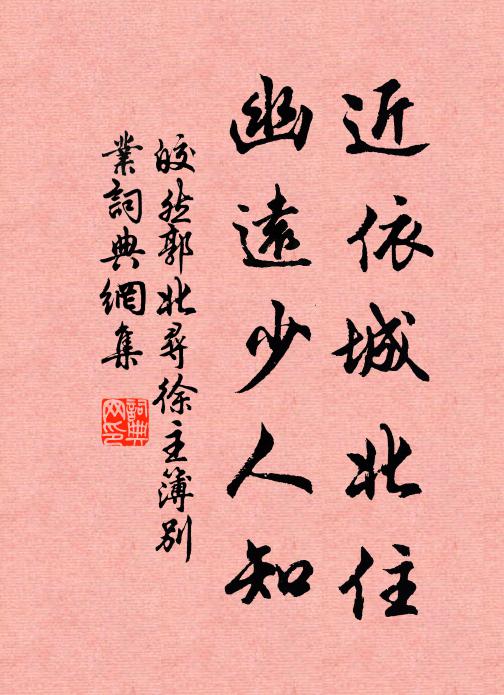 近依城北住
幽遠少人知
皎然郭北尋徐主簿別
業詞典網集
詞典网印